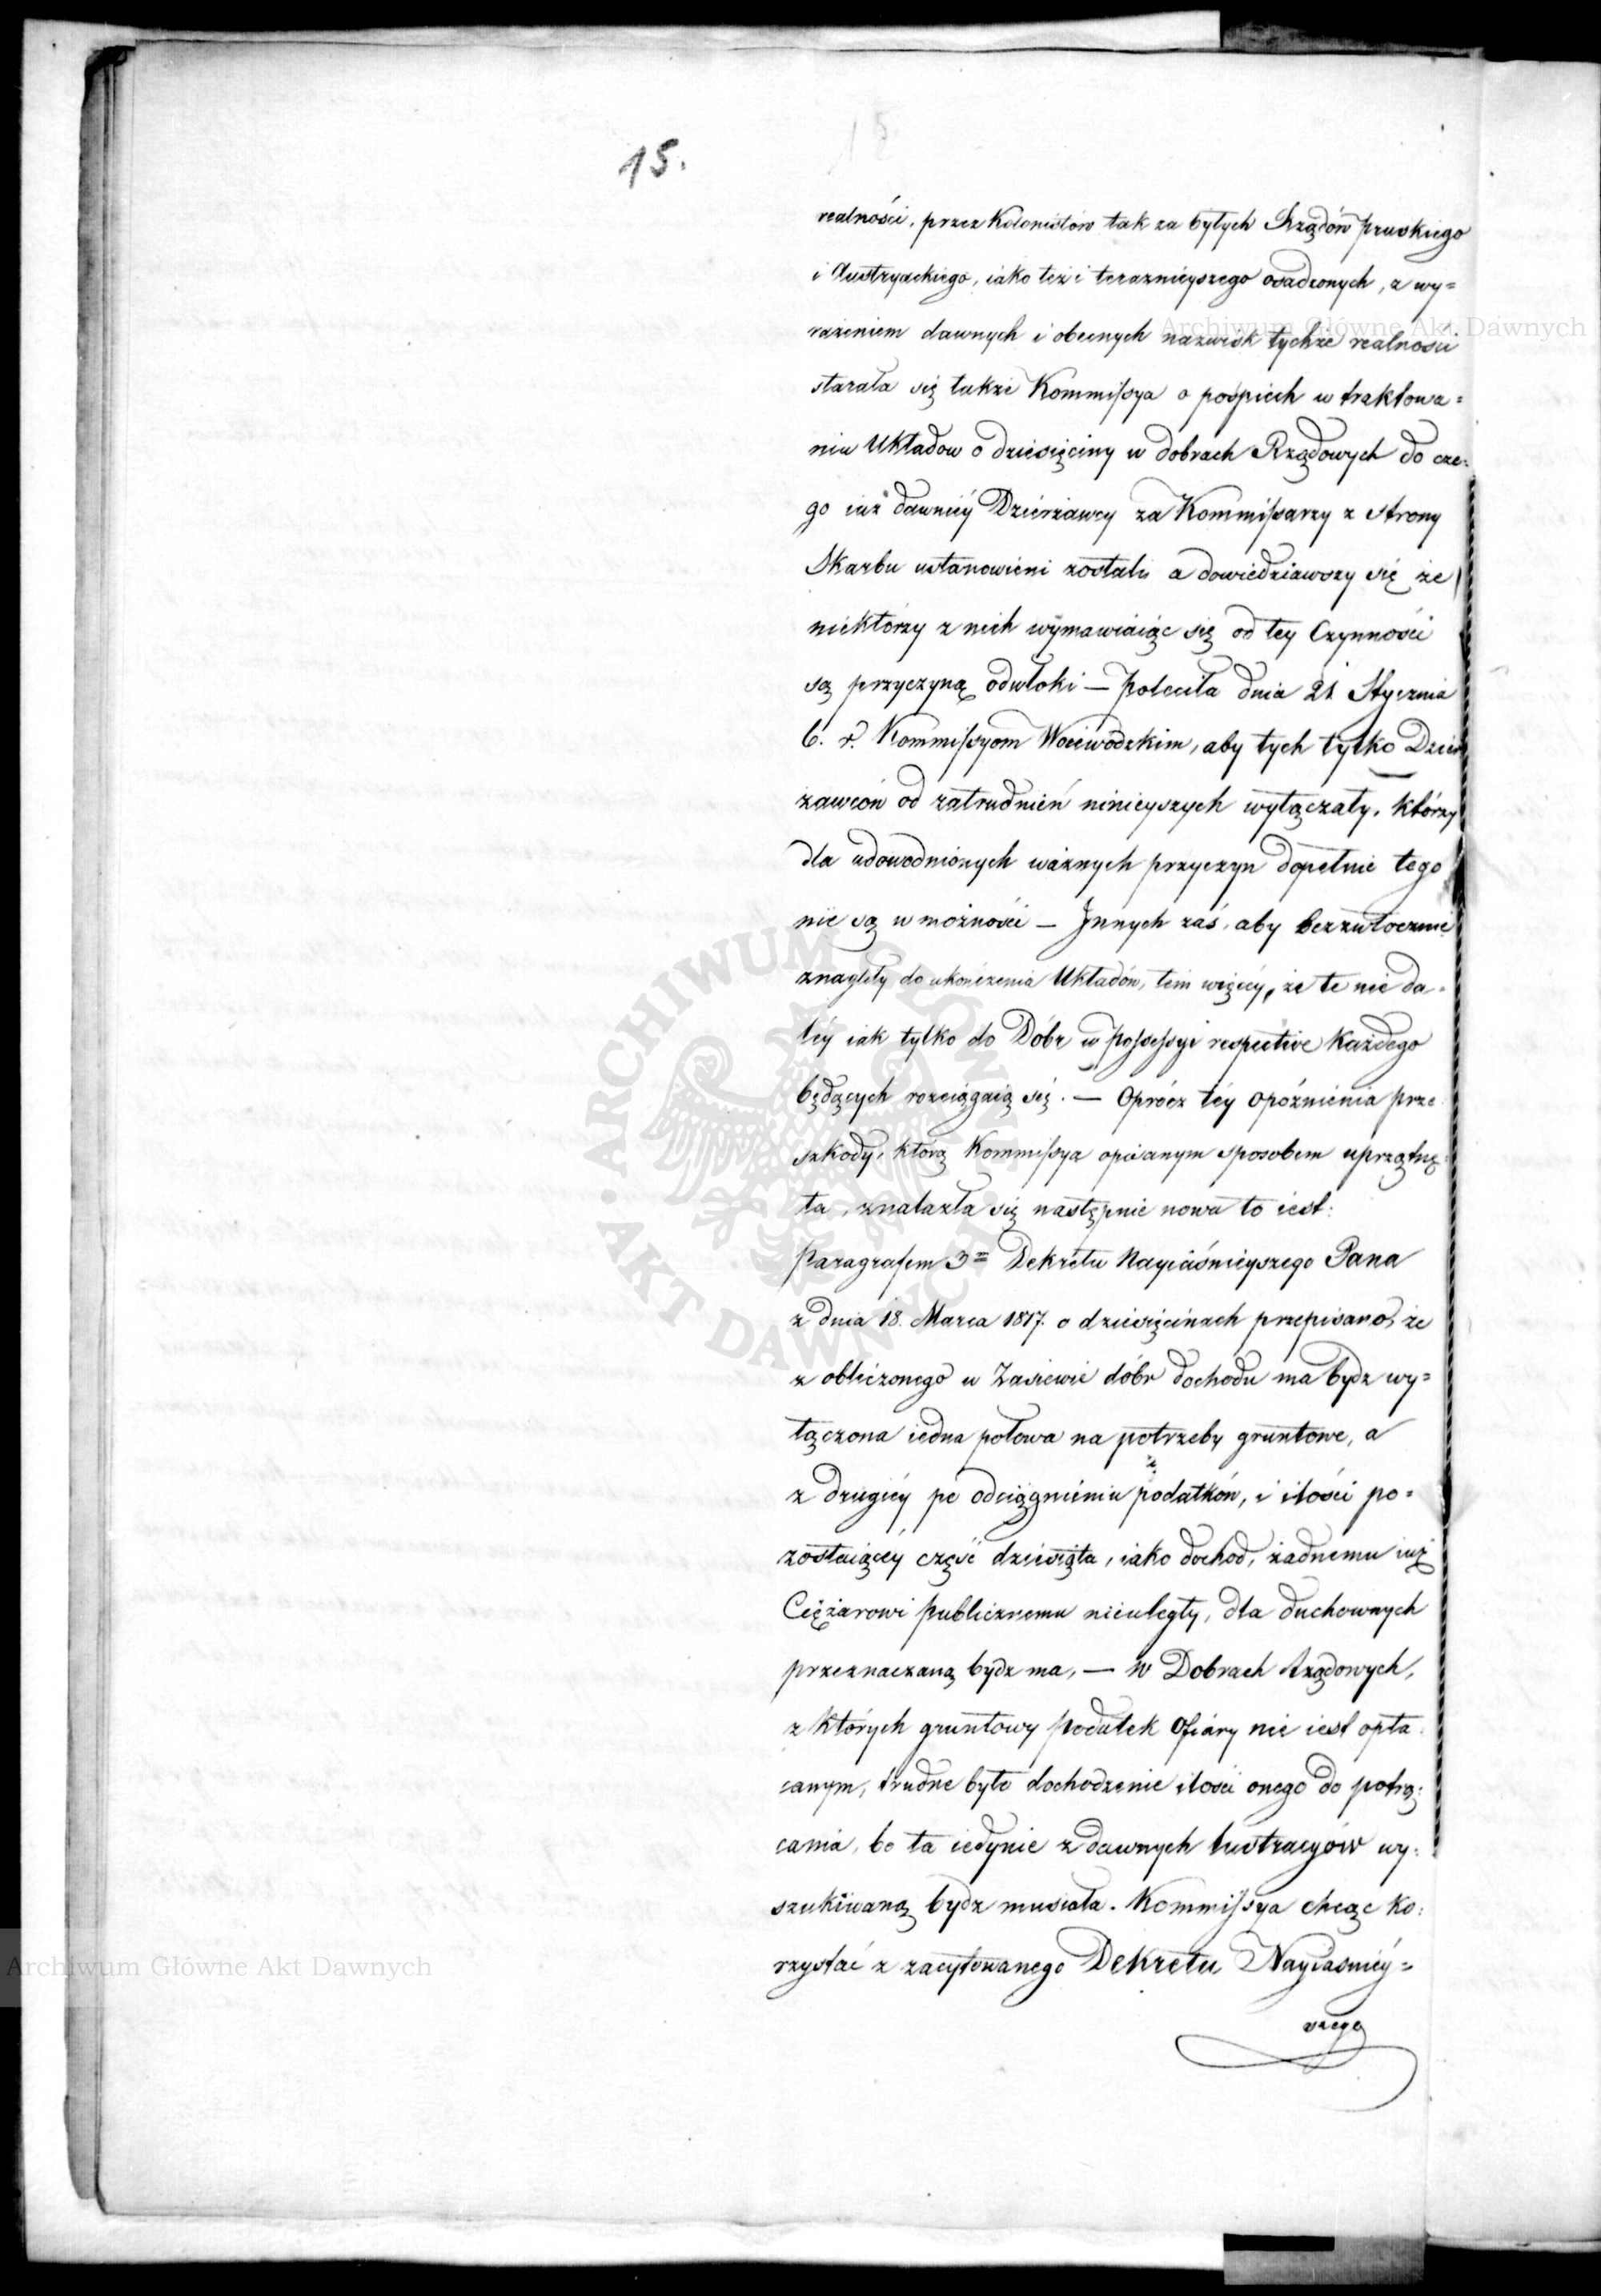 15.
realności, przez Kolonistów tak za byłych Rządów pruskiego
i Austryackiego, iako też i teraznieyszego osadzonych, z wy=
rażeniem dawnych i obecnych nazwisk tychże realności
starała się także Kommissya o pośpiech w traktowa=
niu Układow o dziesięciny w dobrach Rządowych do cze=
go iuż dawniéy Dzierżawcy za Kommissarzy z strony
Skarbu ustanowieni zostali, a dowiedziawszy się że
niektórzy z nich wymawiaiąc się od tey Czynności
są przyczyną odwłoki — poleciła dnia 21 Stycznia
b. r. Kommissyom Woiewodzkim, aby tych tylko Dzier
żawców od zatrudnień ninieyszych wyłączały, którzy
dla udowodnionych ważnych przyczyn dopełnić tego
nie są w możności — Innych zaś, aby bezzwłocznie
znagliły do ukończenia Układów, tem więcéy, że te nie da=
léy iak tylko do Dóbr w possessyi respective Każdego
będących rozciągaią się. — Oprócz téy opóźnienia prze=
szkody, którą Kommissya opisanym sposobem uprzątnę=
ła, znalazła się następnie nowa to iest:
Paragrafem 3m Dekretu Nayiaśnieyszego Pana
z dnia 18. Marca 1817. o dziesięcinach przepisano, że
z obliczonego w Zasiewie dóbr dochodu ma bydz wy=
łączona iedna połowa na potrzeby gruntowe, a
z drugiéy po odciągnieniu podatków, z ilości po=
zostaiącéy część dziesiąta, iako dochod, żadnemu iuż
Ciężarowi publicznemu nieuległy, dla duchownych
przeznaczaną bydz ma, — w Dobrach Rządowych,
z których gruntowy podatek Ofiáry nie iest opła=
canym, trudne było dochodzenie ilości onego do potrą=
cania, bo ta iedynie z dawnych lustracyów wy=
szukiwaną bydz musiała. Kommissya chcąc ko=
rzystać z zacytowanego Dekretu Nayiaśniéy=
szego
Archiwum Główne Akt Dawnych
Archiwum Główne Akt Dawnych
ARCHIWUM GŁÓWNE • AKT DAWNYCH •